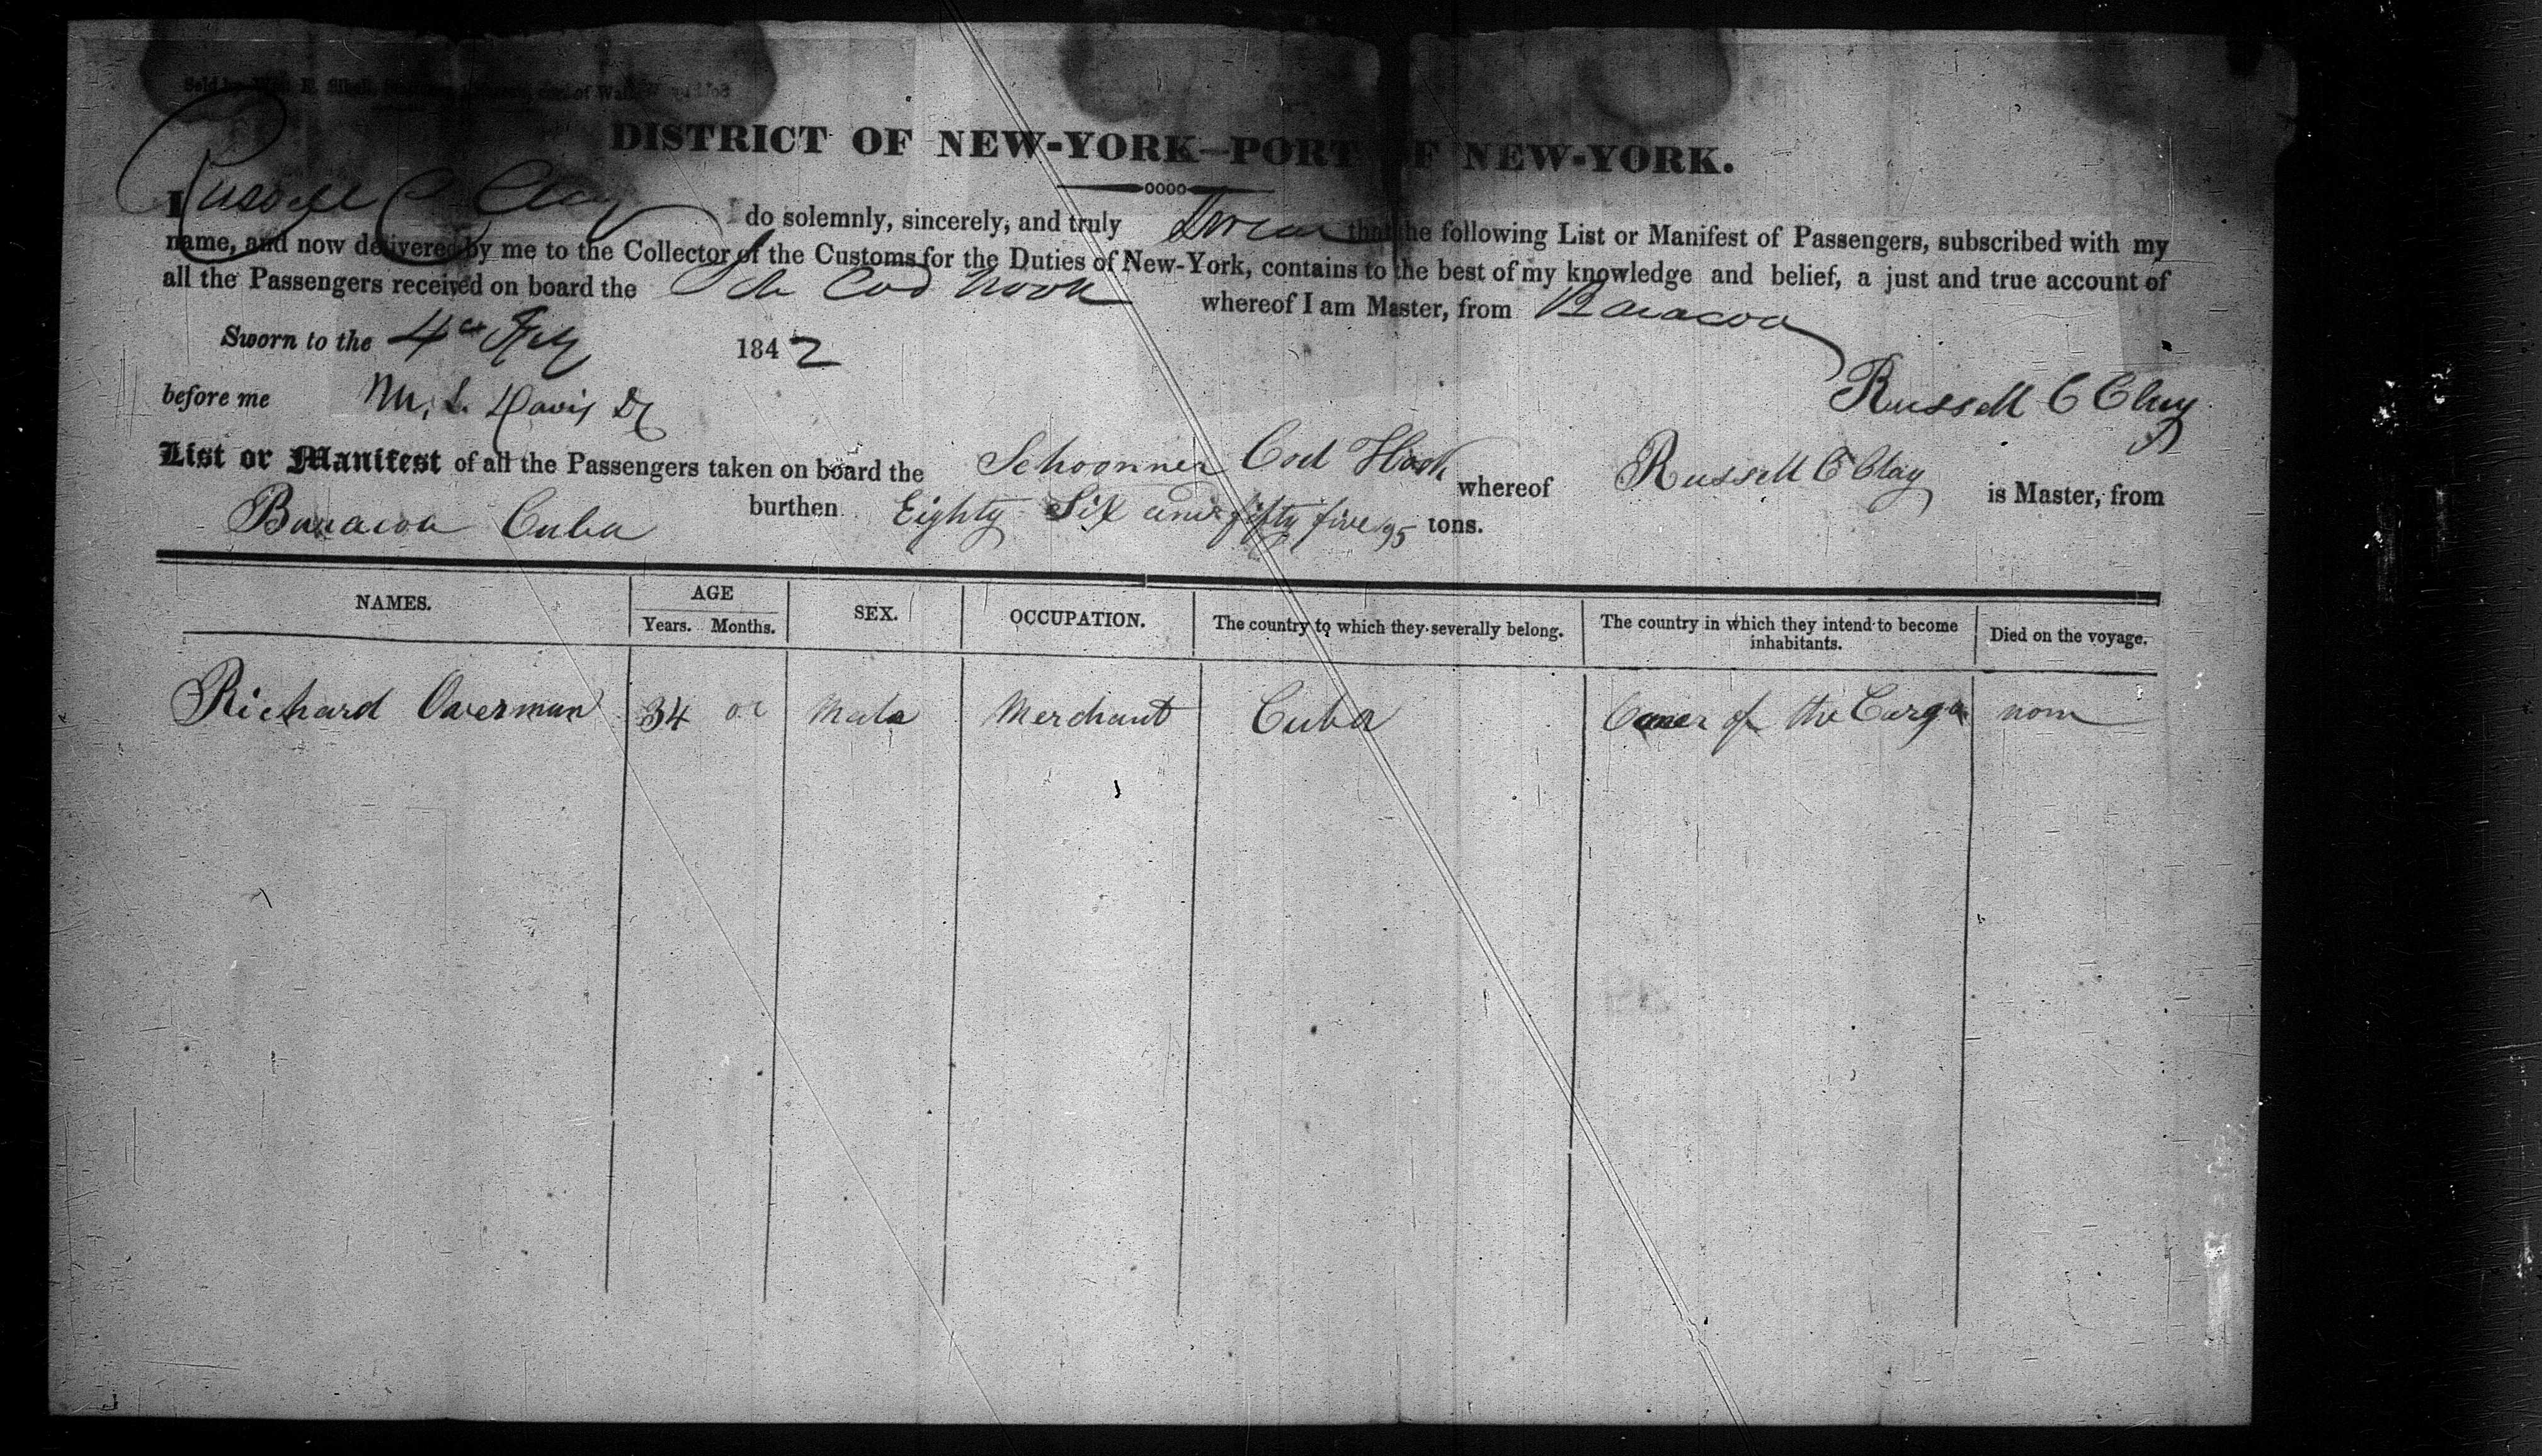 DISTRICT OF NEW-YORK—PORT OF NEW-YORK.
I Russell C Clay do solemnly, sincerely, and truly Swear that the following List or Manifest of Passengers, subscribed with my
name, and now delivered by me to the Collector of the Customs for the Duties of New-York, contains to the best of my knowledge and belief, a just and true account of
all the Passengers received on board the Sch Cod Hook whereof I am Master, from Baracoa
Sworn to the 4 1842
before me M. L. Davis
Russell C Clay
List or Manifest of all the Passengers taken on board the Schoonner Cod Hook whereof Russell C Clay is Master, from
Baracoa Cuba burthen Eighty Six and fifty five 95 tons.
NAMES. AGE SEX. OCCUPATION. The country to which they severally belong. The country in which they intend to become inhabitants. Died on the voyage.
Years. Months.
Richard Overman 34 Male Merchant Cuba Owner of the Cargo non